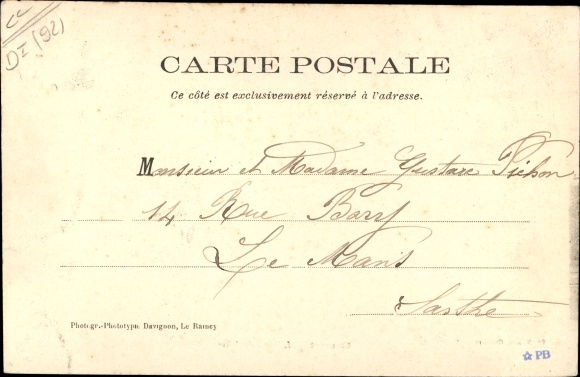 CC
DI (92)
CARTE POSTALE
Ce côté est exclusivement réservé à l'adresse.
Monsieur et Madame Gustave Pichon
14 Rue Barry
Le Mans
Sarthe
Photogr.-Phototypie Davignon, Le Raincy
☆ PB